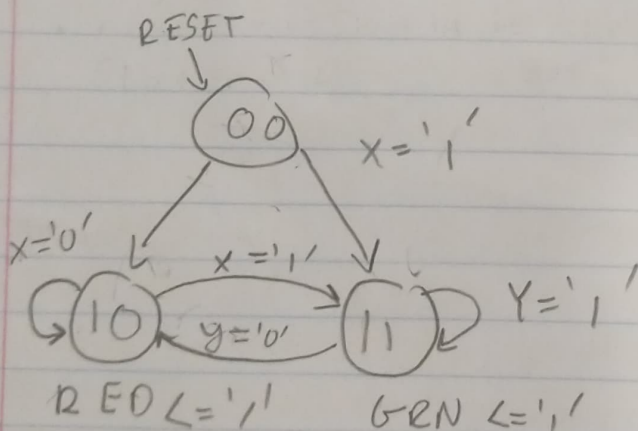 RESET
00
X='1'
X='0'
X='1'
10
y='0'
11
Y='1'
RED<='1'
GRN <='1'